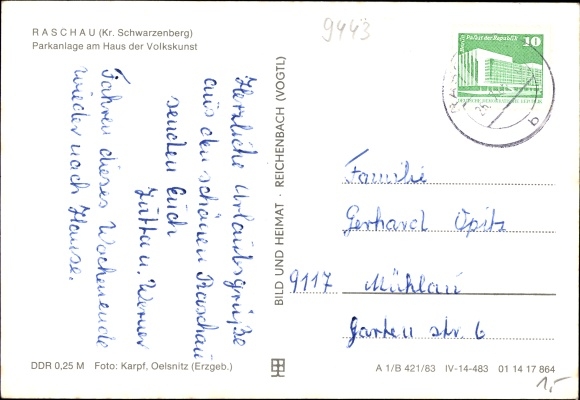 RASCHAU (Kr. Schwarzenberg)
Parkanlage am Haus der Volkskunst
9443
Palast der Republik
10
Herzliche Urlaubsgrüße
aus den schönen Raschau
senden Euch
Jutta u. Werner
Fahren dieses Wochenende
wieder nach Hause.
BILD UND HEIMAT · REICHENBACH (VOGTL)
Familie
Gerhard Opitz
9117 Mühlau
Garten str. 6
DDR 0,25 M Foto: Karpf, Oelsnitz (Erzgeb.)
A 1/B 421/83 IV-14-483 01 14 17 864
1,-